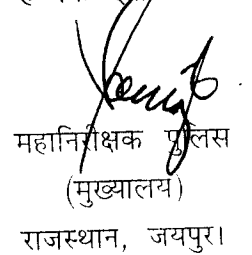 महानिरीक्षक पुलिस
(मुख्यालय)
राजस्थान, जयपुर।